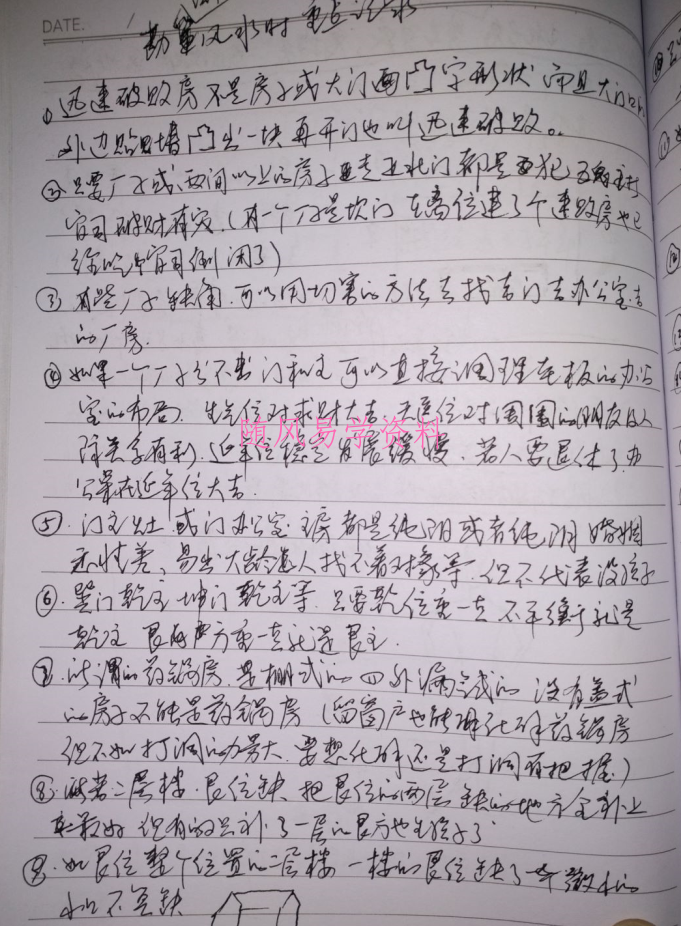 DATE.
勘察风水时重点记录
① 迅速破败房不是房子或大门画凸字形状 而且大门口
外边贴着墙凸出一块再开门也叫迅速破败。
② 只要厂子或两间以上的房子 正北门都是要犯
官司破财有灾.(有一个厂子是坎门 在离位建了个速败房也已
经吃官司倒闭了)
③ 有些厂子缺角.可以用切割的方法去找吉门吉办公室吉
的厂房.
④ 如果一个厂子分不出门和主 可以直接调理老板的办公
室的布局. 生气位对求财大吉 天医位对周围的朋友的人
际关系有利.延年位稳定发展缓慢.若人要退休了办
公桌在延年位大吉.
⑤.门主灶.或门办公室 主房都是纯阴或者纯阳 婚姻
易出大龄 人找不着对象等.但不代表没孩子
⑥. 门乾主 坤门乾主等.只要乾位重一点 不平衡就是
乾主 艮 方重一点就是艮主.
⑦.所谓的药锅房.是棚式的 四外漏 式的 没有盖式
的房子不能是药锅房(留窗户也能化解药锅房
但不如打洞的力量大.要想化解还是打洞有把握)
⑧. 二层楼.艮位缺.把艮位的两层缺的地方全补上
最好 但有的只补了一层的艮方也生孩子了
⑨.如艮位整个位置的二层楼 一楼的艮位缺了 微小的
不算缺
随风易学资料